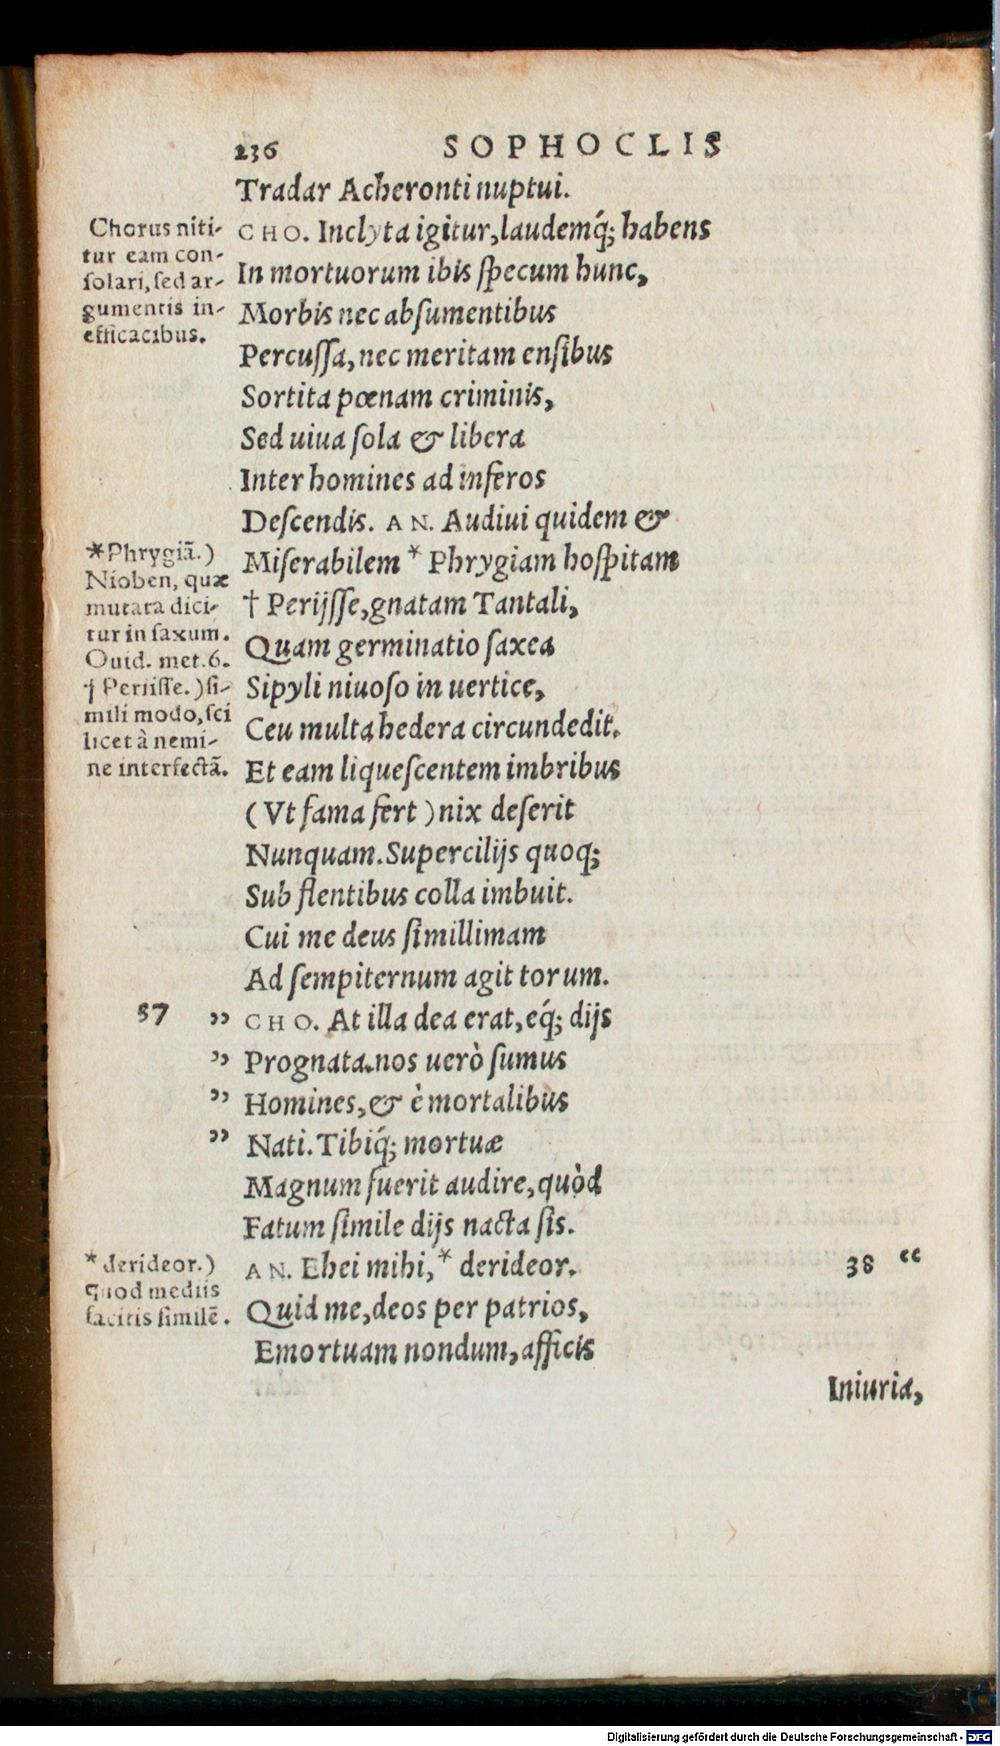 236 SOPHOCLIS
Tradar Acheronti nuptui.
CHO. Inclyta igitur, laudemq́; habens
In mortuorum ibis ſpecum hunc,
Morbis nec abſumentibus
Percuſſa, nec meritam enſibus
Sortita pœnam criminis,
Sed uiua ſola & libera
Inter homines ad inferos
Deſcendis. AN. Audiui quidem &
Miſerabilem * Phrygiam hoſpitam
† Perijſſe, gnatam Tantali,
Quam germinatio ſaxea
Sipyli niuoſo in uertice,
Ceu multa hedera circundedit.
Et eam liqueſcentem imbribus
(Vt fama fert) nix deſerit
Nunquam. Supercilijs quoq;
Sub flentibus colla imbuit.
Cui me deus ſimillimam
Ad ſempiternum agit torum.
37 ” CHO. At illa dea erat, eq́; dijs
” Prognata. nos uerò ſumus
” Homines, & è mortalibus
” Nati. Tibiq́; mortuæ
Magnum fuerit audire, quòd
Fatum ſimile dijs nacta ſis.
AN. Ehei mihi, * derideor. 38 “
Quid me, deos per patrios,
Emortuam nondum, afficis
Iniuria,
Chorus niti-
tur eam con-
ſolari, ſed ar-
gumentis in-
efficacibus.
*Phrygiã.)
Nioben, quæ
mutata dici-
tur in ſaxum.
Ouid. met. 6.
† Periiſſe.) ſi-
mili modo, ſci
licet à nemi-
ne interfectã.
* derideor.)
quod mediis
facitis ſimilẽ.
Digitalisierung gefördert durch die Deutsche Forschungsgemeinschaft - DFG